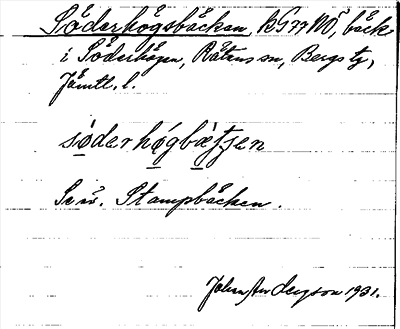 Söderhögsbäcken, kG77NÖ, bäck
i Söderhögen, Rätans sn, Bergs tg,
Jämtl. l.
söderhǿgbætʃen
Se ö. Stampbäcken.
Johan Andersson 1931.